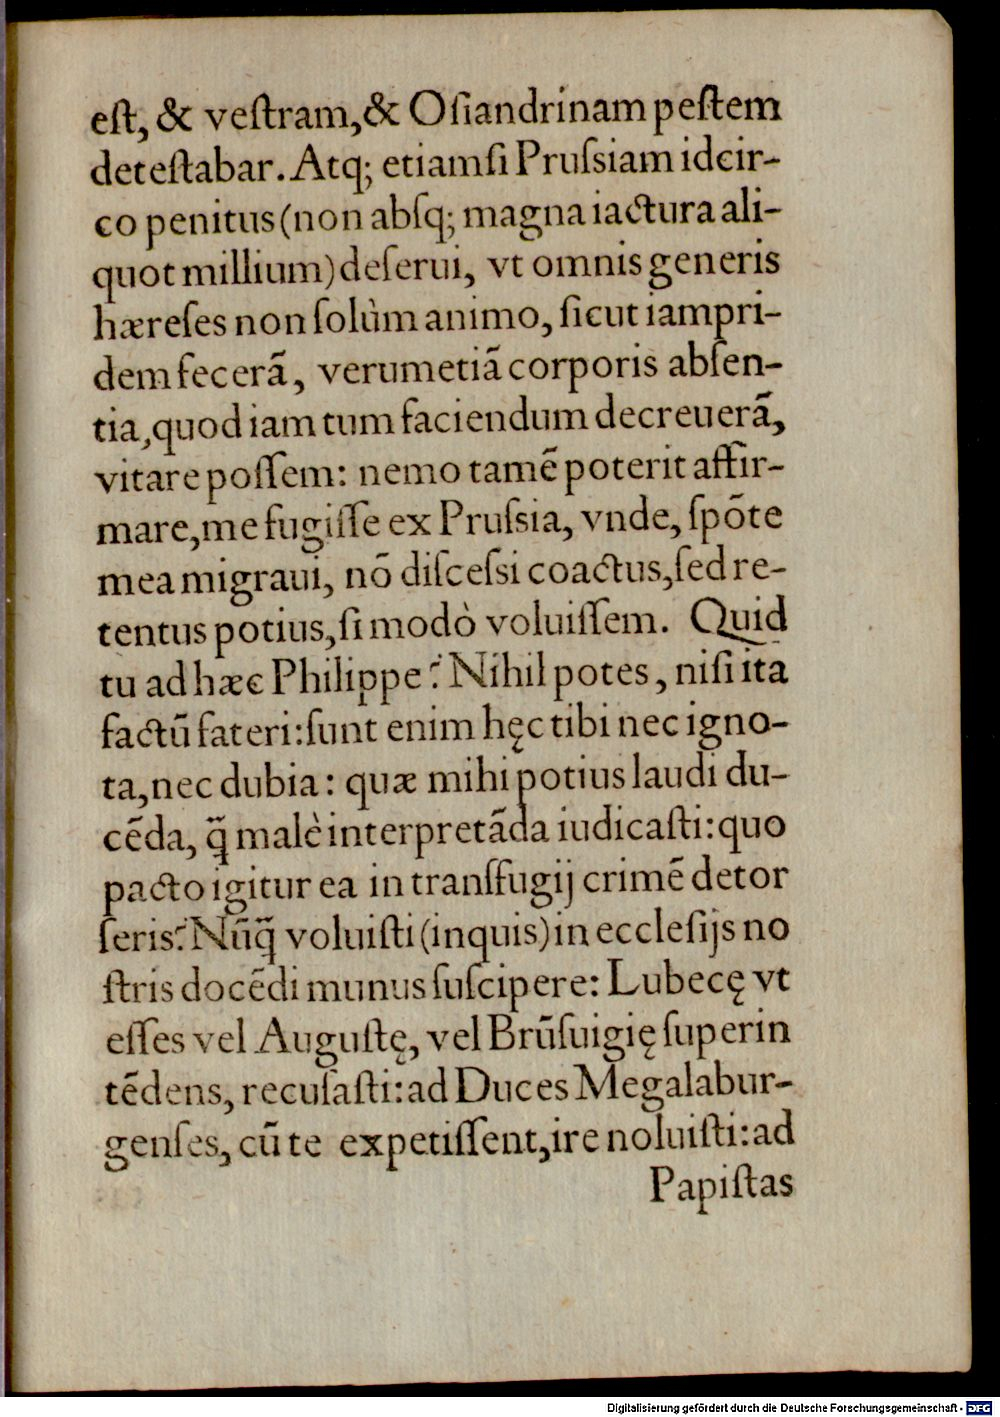 eſt, & veſtram,& Oſiandrinam peſtem
deteſtabar. Atq; etiamſi Pruſsiam idcir-
co penitus (non abſq; magna iactura ali-
quot millium) deſerui, vt omnis generis
hæreſes non ſolùm animo, ſicut iampri-
dem fecerã, verumetiã corporis abſen-
tia,quod iam tum faciendum decreuerã,
vitare poſſem: nemo tamẽ poterit affir-
mare,me fugiſſe ex Pruſsia, vnde, ſpõte
mea migraui, nõ diſceſsi coactus,ſed re-
tentus potius,ſi modò voluiſſem. Quid
tu ad hæc Philippe? Nihil potes, niſi ita
factũ fateri:ſunt enim hęc tibi nec igno-
ta,nec dubia: quæ mihi potius laudi du-
cẽda, q̃ malè interpretãda iudicaſti:quo
pacto igitur ea in transfugij crimẽ detor
ſeris? Nũq̃ voluiſti (inquis) in eccleſijs no
ſtris docẽdi munus ſuſcipere: Lubecę vt
eſſes vel Auguſtę, vel Brũſuigię ſuperin
tẽdens, recuſaſti:ad Duces Megalabur-
genſes, cũ te expetiſſent,ire noluiſti:ad
Papiſtas
Digitalisierung gefördert durch die Deutsche Forschungsgemeinschaft - DFG